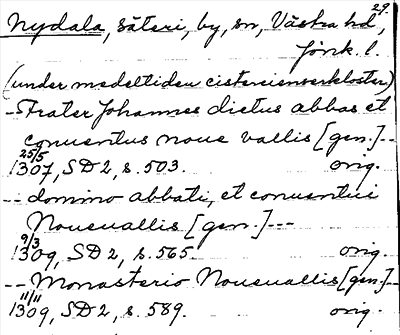 29.
Nydala, säteri, by, sn, Västra hd,
Jönk. l.
(under medeltiden cistercienserkloster)
-- Frater Johannes dictus abbas et
conuentus noue vallis [gen.] --
25/5
1307, SD 2, s. 503. orig.
-- domino abbati, et conuentui
Noueuallis [gen.] ---
9/3
1309, SD 2, s. 565. orig.
-- Monasterio Noueuallis [gen.] --
11/11
1309, SD 2, s. 589. orig.